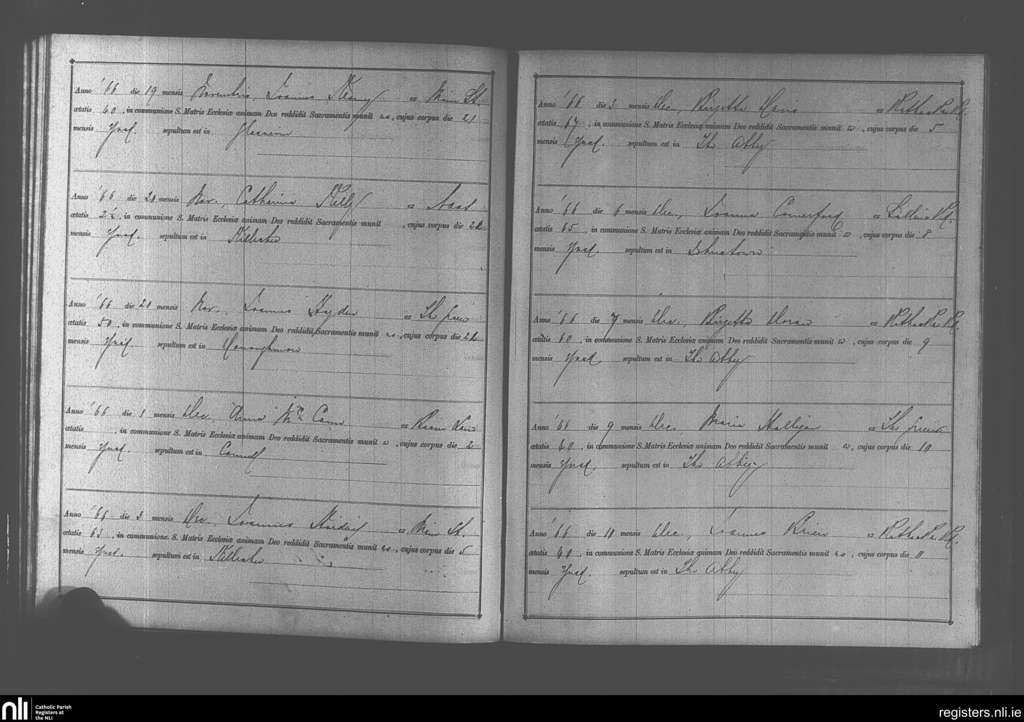 Anno '66 die 19 mensis Novembris, Joannes Kenny e Main St.
ætatis 60, in communione S. Matris Ecclesiæ animam Deo reddidit Sacramentis munit us, cujus corpus die 21
mensis Præf. sepultum est in
Anno '66 die 20 mensis Nov., Catharina Kelly e Naas
ætatis 22, in communione S. Matris Ecclesiæ animam Deo reddidit Sacramentis munit , cujus corpus die 22
mensis Præf. sepultum est in Killashee
Anno '66 die 20 mensis Nov., Joannes Hyder e The Green
ætatis 50, in communione S. Matris Ecclesiæ animam Deo reddidit Sacramentis munit us, cujus corpus die 22
mensis Præf. sepultum est in
Anno '66 die 1 mensis Dec. Anna McCann e
ætatis , in communione S. Matris Ecclesiæ animam Deo reddidit Sacramentis munit a, cujus corpus die 2
mensis Præf. sepultum est in
Anno '66 die 3 mensis Dec. Joannes e Main St.
ætatis 63, in communione S. Matris Ecclesiæ animam Deo reddidit Sacramentis munit us, cujus corpus die 5
mensis Præf. sepultum est in Killashee
Anno '66 die 3 mensis Dec., Brigitta e Rathasker Rd.
ætatis 67, in communione S. Matris Ecclesiæ animam Deo reddidit Sacramentis munit a, cujus corpus die 5
mensis Præf. sepultum est in The Abby
Anno '66 die 6 mensis Dec., Joanna Comerford e
ætatis 65, in communione S. Matris Ecclesiæ animam Deo reddidit Sacramentis munit a, cujus corpus die 8
mensis Præf. sepultum est in Johnstown
Anno '66 die 7 mensis Dec. Brigitta Doran e Rathasker Rd.
ætatis 60, in communione S. Matris Ecclesiæ animam Deo reddidit Sacramentis munit a, cujus corpus die 9
mensis Præf. sepultum est in The Abby
Anno '66 die 9 mensis Dec. Maria Mulligan e The Green
ætatis 60, in communione S. Matris Ecclesiæ animam Deo reddidit Sacramentis munit a, cujus corpus die 10
mensis Præf. sepultum est in The Abby
Anno '66 die 10 mensis Dec., Joannes e Rathasker Rd.
ætatis 60, in communione S. Matris Ecclesiæ animam Deo reddidit Sacramentis munit us, cujus corpus die 11
mensis Præf. sepultum est in The Abby
nli Catholic Parish
Registers at
the NLI
registers.nli.ie